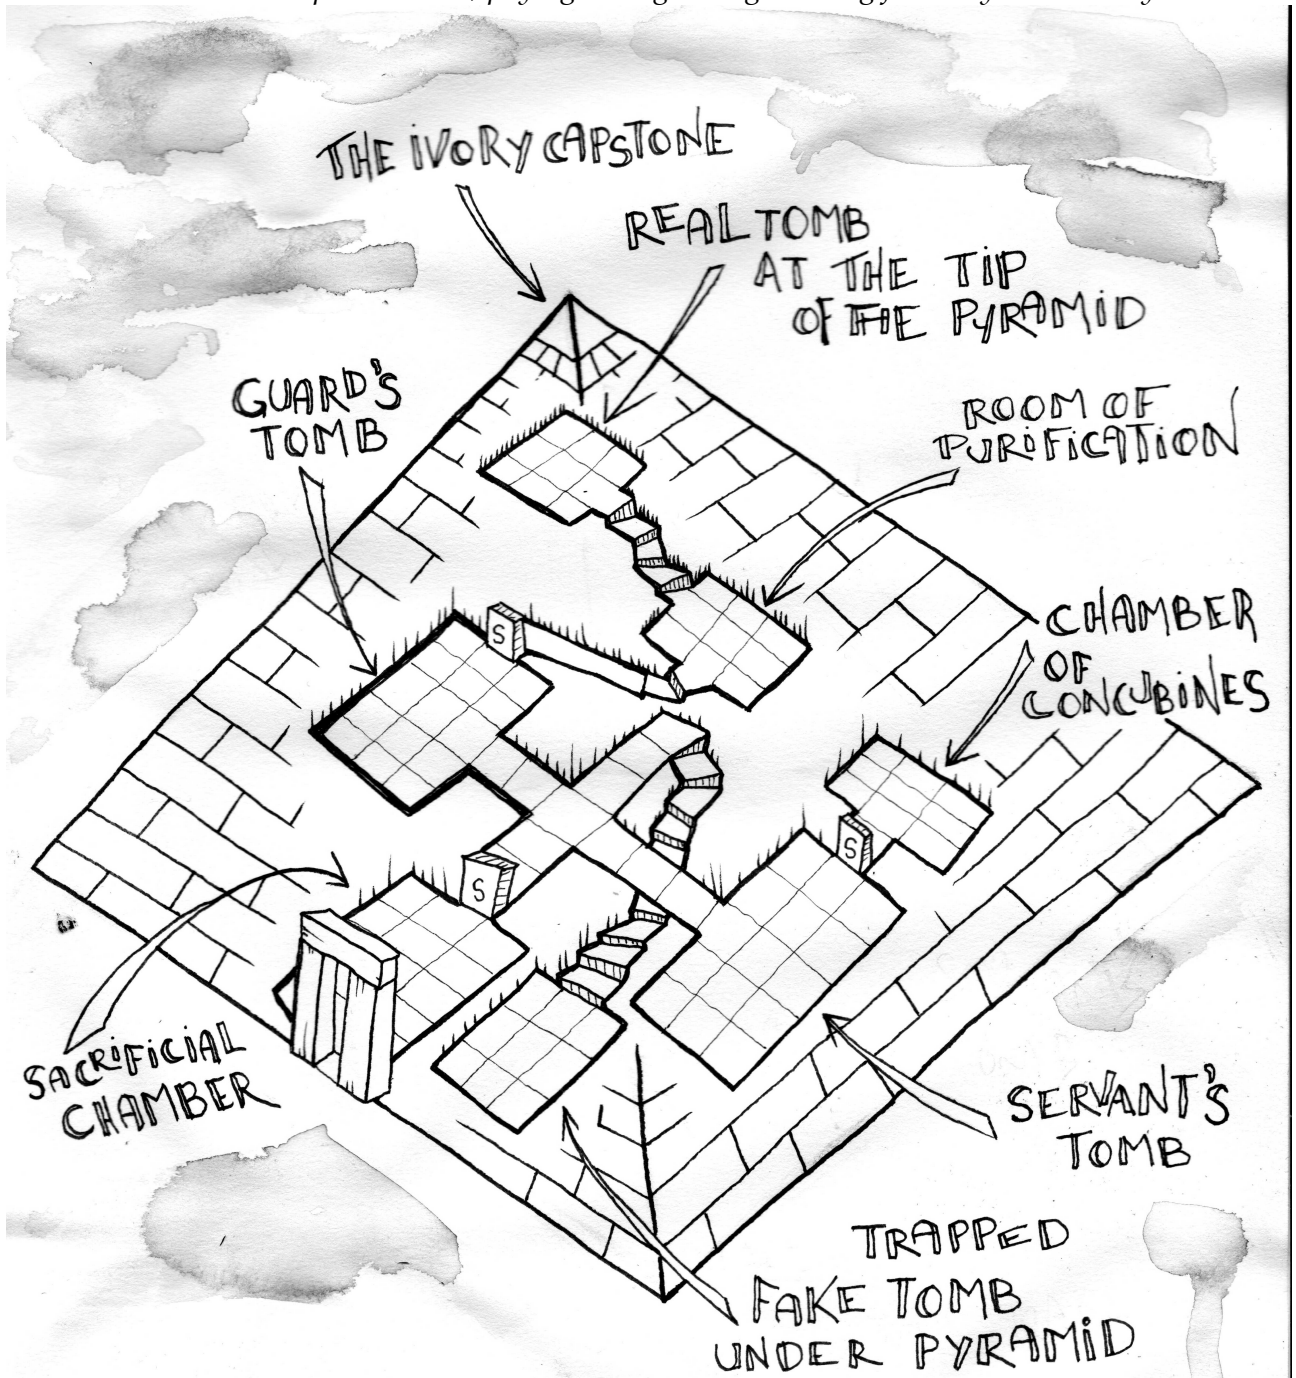 THE IVORY CAPSTONE
REAL TOMB
AT THE TIP
OF THE PYRAMID
GUARD'S
TOMB
ROOM OF
PURIFICATION
CHAMBER
OF
CONCUBINES
S
S
S
SACRIFICIAL
CHAMBER
SERVANT'S
TOMB
TRAPPED
FAKE TOMB
UNDER PYRAMID